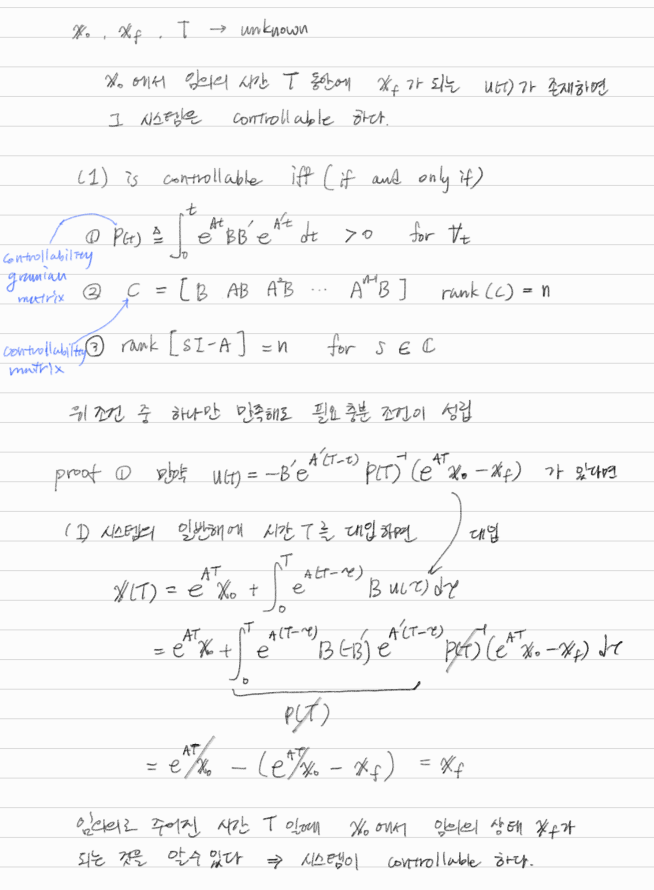 x₀, x_f, T → unknown
x₀ 에서 임의의 시간 T 동안에 x_f 가 되는 u(t)가 존재하면
그 시스템은 controllable 하다.
(1) is controllable iff (if and only if)
① P(t) ≜ ∫₀ᵗ e^{At} BB' e^{A't} dt > 0 for ∀t
controllability gramian matrix
② C = [ B AB A²B ⋯ A^{n-1}B ] rank(C) = n
controllability matrix
③ rank [ SI-A ] = n for s ∈ ℂ
위 조건 중 하나만 만족해도 필요충분 조건이 성립
proof ① 만약 u(t) = -B' e^{A'(T-t)} P(T)⁻¹ (e^{AT} x₀ - x_f) 가 있다면
(1) 시스템의 일반해에 시간 T를 대입하면 대입
x(T) = e^{AT} x₀ + ∫₀ᵀ e^{A(T-τ)} B u(τ) dτ
= e^{AT} x₀ + ∫₀ᵀ e^{A(T-τ)} B(-B') e^{A'(T-τ)} P(T)⁻¹ (e^{AT} x₀ - x_f) dτ
P(T)
= e^{AT} x₀ - (e^{AT} x₀ - x_f) = x_f
임의로 주어진 시간 T 일때 x₀에서 임의의 상태 x_f가
되는 것을 알수있다 ⇒ 시스템이 controllable 하다.